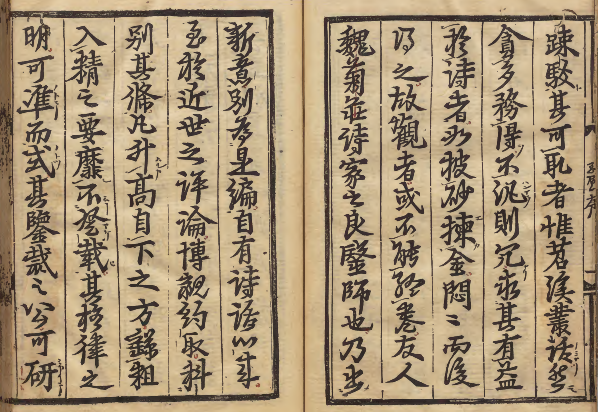 疎駁其可取者惟苕溪叢話然
貪多務得不汎則冗求其有益
於詩者如披砂揀金悶〻而後
得之故觀者或不能終卷友人
魏菊莊詩家之良醫師也乃出
新意別為是編自有詩話以来
至於近世之評論博観約取科
別其條凡升高自下之方繇粗
入精之要靡不登載其格律之
明可準而式其鑒裁之公可研